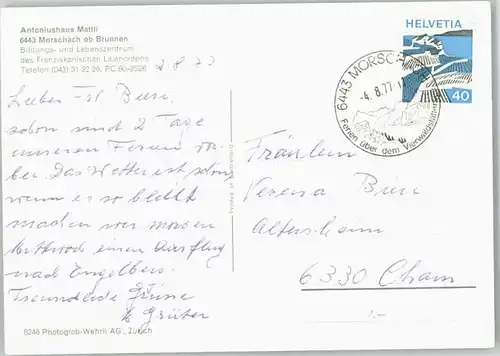 Antoniushaus Mattli
6443 Morschach ob Brunnen
Bildungs- und Lebenszentrum
des Franziskanischen Laienordens
Telefon (043) 31 22 26, PC 60-2526
2.8.73
Liebes Frl. Bieri.
schon sind 2 Tage
unseren Ferien vor-
bei. Das Wetter ist schön
wenn es so bleibt
machen wir morgen
Mittwoch einen Ausflug
nach Engelberg.
Freundliche Grüsse
Grüter
6246 Photograb-Wehrli AG., Zürich
HELVETIA
40
6443 MORSC
-4.8.77
Ferien über dem Vierwaldstätter
Fräulein
Verena Bieri
Altersheim
6330 Cham
1.-